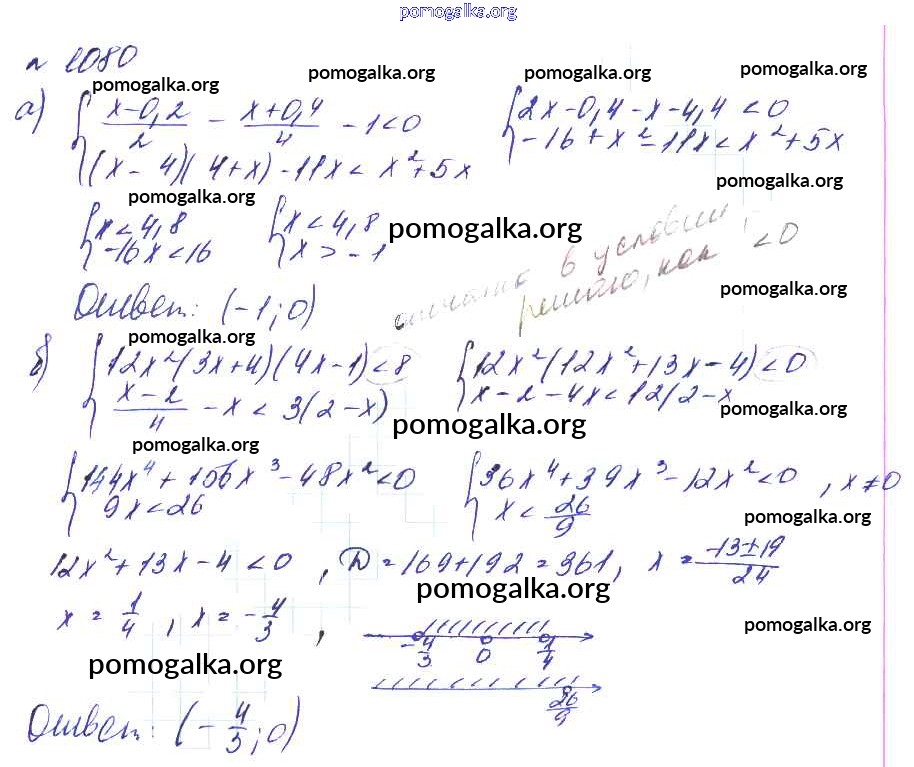 pomogalka.org
№ 1080
pomogalka.org pomogalka.org pomogalka.org pomogalka.org
а) { (x-0,2)/2 - (x+0,4)/4 - 1 < 0 { 2x-0,4-x-4,4 < 0
(x-4)(4+x)-11x < x²+5x -16+x²-11x < x²+5x
pomogalka.org pomogalka.org
{ x < 4,8 { x < 4,8 pomogalka.org
-16x < 16 x > -1
в условии
решаю, как < 0
pomogalka.org
Ответ: (-1; 0)
pomogalka.org
б) { 12x²(3x+4)(4x-1) < 8 { 12x²(12x²+13x-4) < 0
(x-2)/4 - x < 3(2-x) x-2-4x < 12(2-x
pomogalka.org pomogalka.org
pomogalka.org
{ 144x⁴+156x³-48x² < 0 { 36x⁴+39x³-12x² < 0 , x ≠ 0
9x < 26 x < 26/9
pomogalka.org
12x²+13x-4 < 0 , D = 169+192 = 361, x = (-13±19)/24
pomogalka.org
x = 1/4 , x = -4/3 ,
-4/3 0 1/4
pomogalka.org
pomogalka.org
26/9
Ответ: (-4/3; 0)